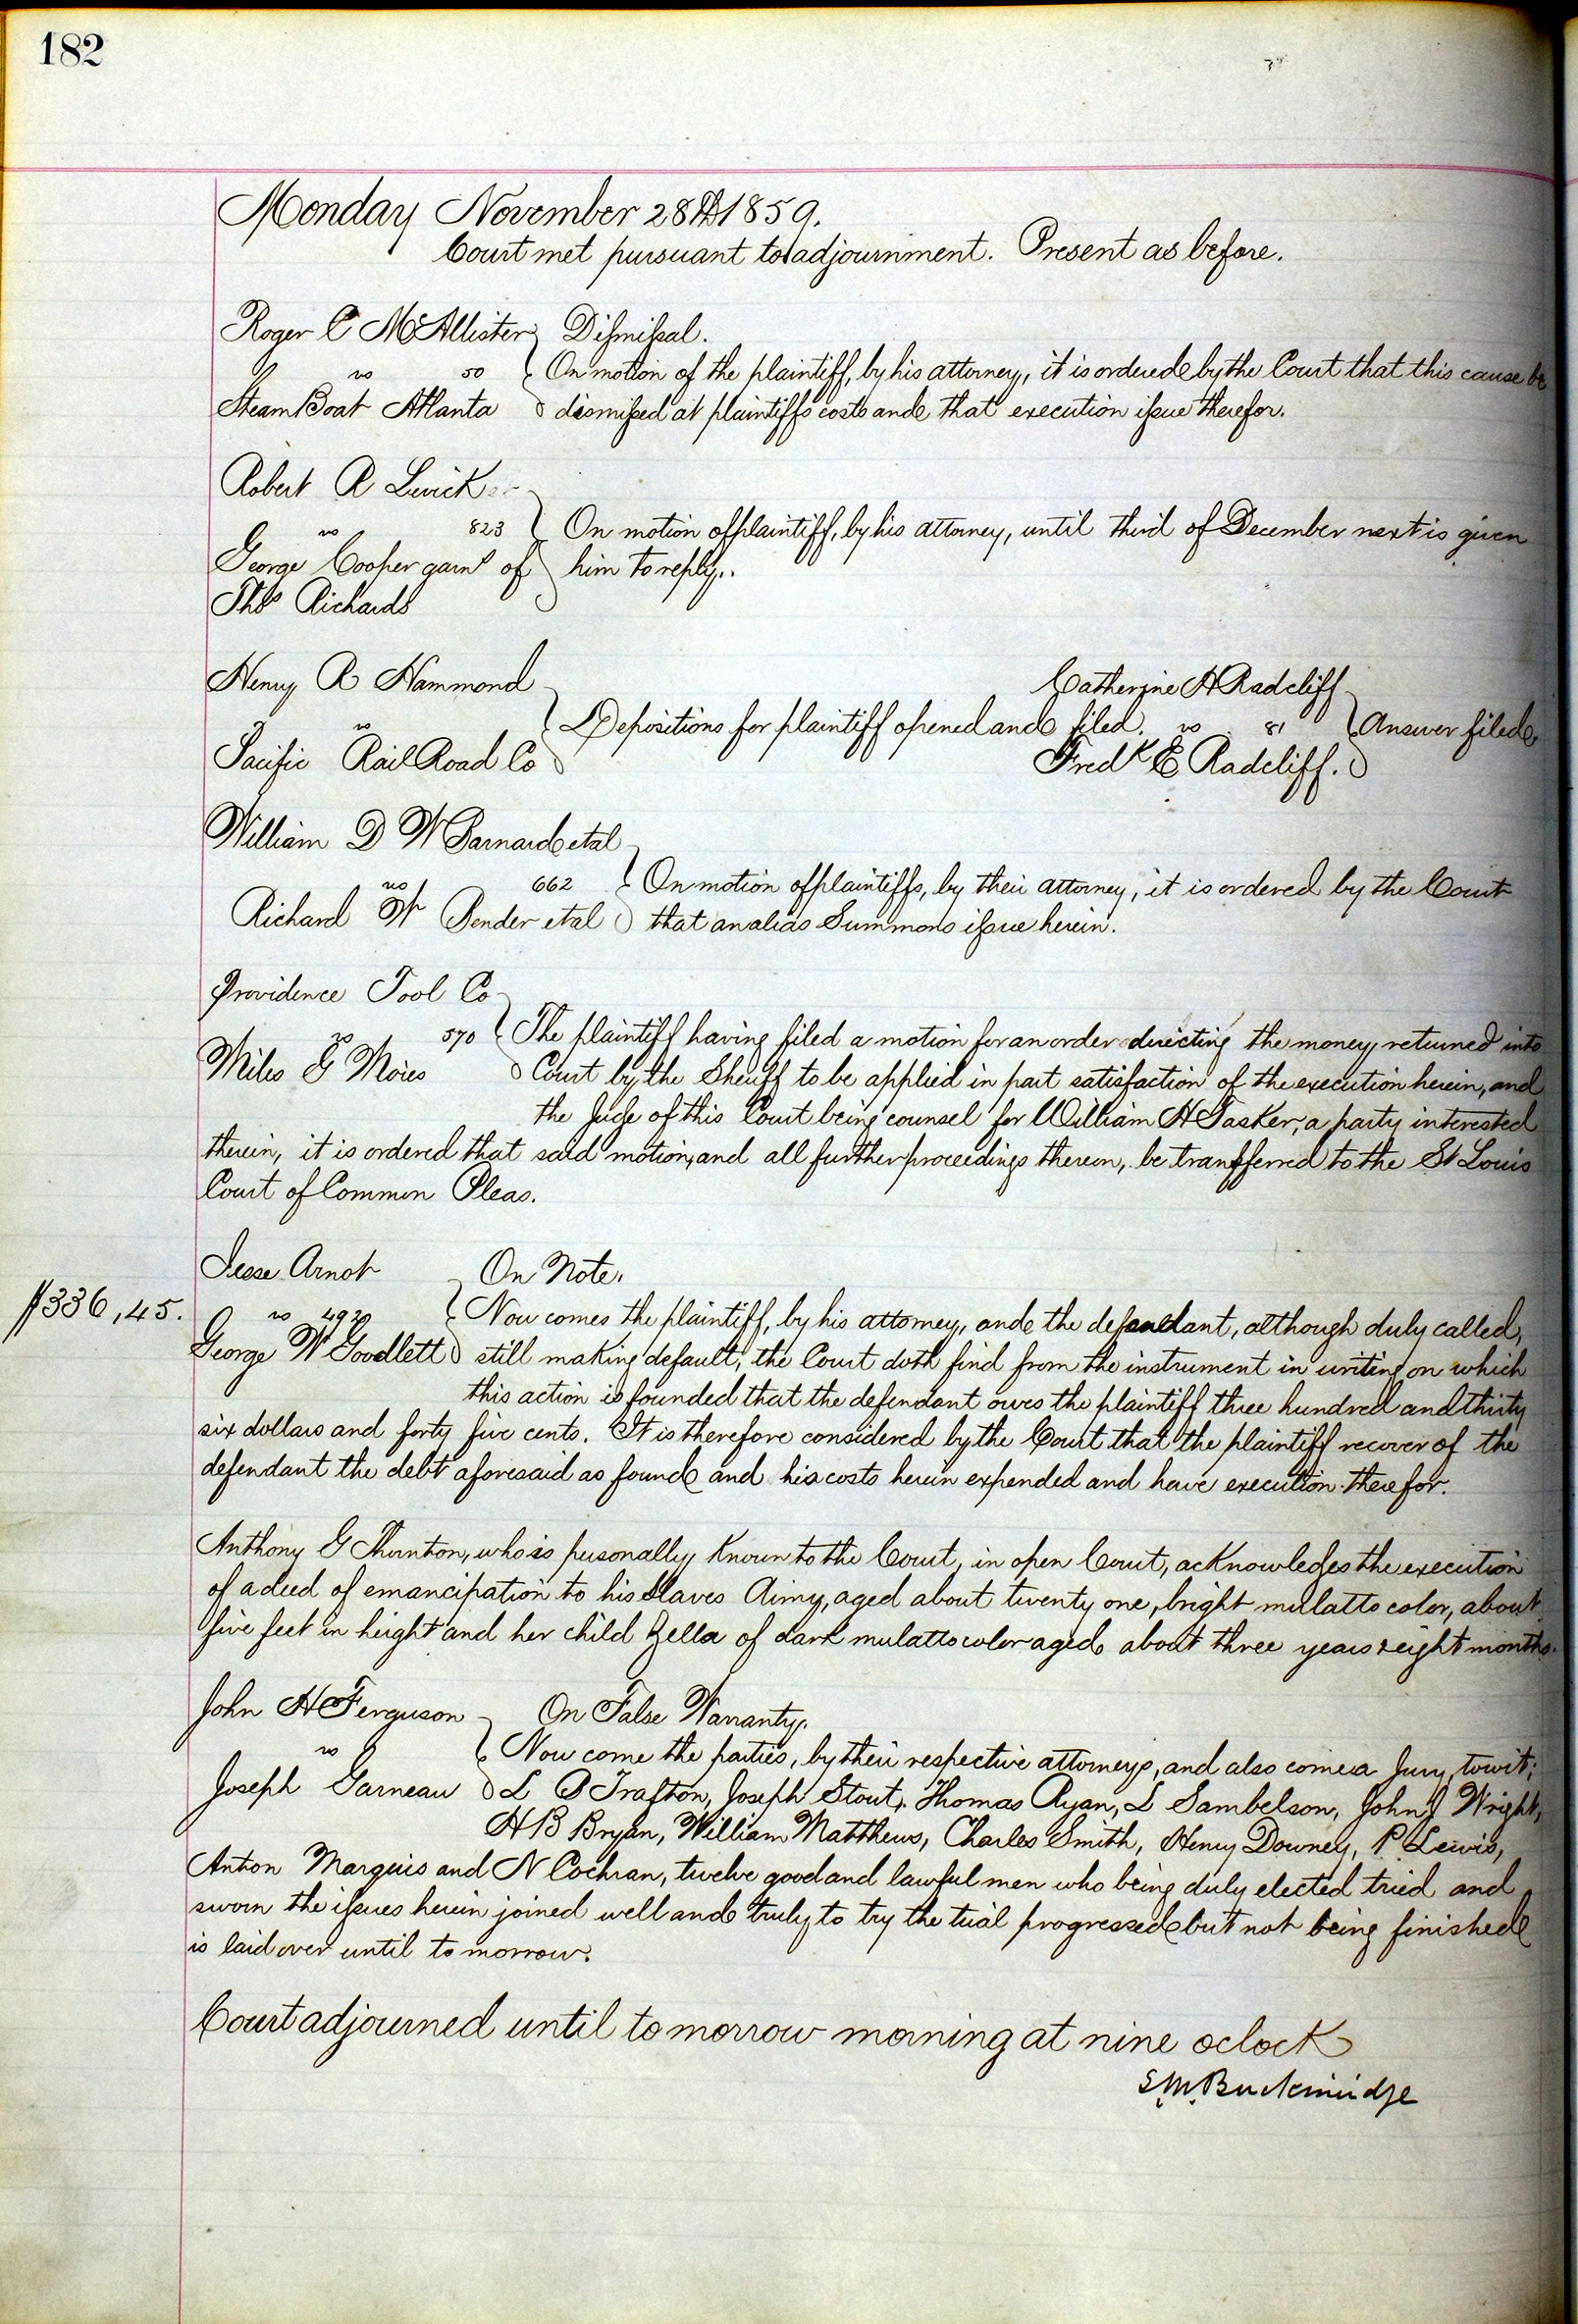 182
Monday November 28th 1859.
Court met pursuant to adjournment. Present as before.
Roger C McAllister Dismissal.
vs 50 On motion of the plaintiff, by his attorney, it is ordered by the Court that this cause be
Steam Boat Atlanta dismissed at plaintiffs costs and that execution issue therefor.
Robert R Livick
vs 823 On motion of plaintiff, by his attorney, until third of December next is given
George Cooper garns of him to reply.
Thos Richards
Henry R Hammond Catherine A Radcliff
vs Depositions for plaintiff opened and filed. vs 81 Answer filed.
Pacific Rail Road Co Fredk E Radcliff.
William D W Barnard et al
vs 662 On motion of plaintiffs, by their attorney, it is ordered by the Court
Richard W Bender et al that an alias Summons issue herein.
Providence Tool Co
vs 570 The plaintiff having filed a motion for an order directing the money returned into
Miles G Moies Court by the Sheriff to be applied in part satisfaction of the execution herein, and
the Judge of this Court being counsel for William H Tasker, a party interested
therein, it is ordered that said motion, and all further proceedings thereon, be transferred to the St Louis
Court of Common Pleas.
Jesse Arnot On Note.
$336,45. vs Now comes the plaintiff, by his attorney, and the defendant, although duly called,
George W Goodlett still making default, the Court doth find from the instrument in writing on which
this action is founded that the defendant owes the plaintiff three hundred and thirty
six dollars and forty five cents. It is therefore considered by the Court that the plaintiff recover of the
defendant the debt aforesaid as found and his costs herein expended and have execution therefor.
Anthony G Thornton, who is personally known to the Court, in open Court, acknowledges the execution
of a deed of emancipation to his slaves Aimy, aged about twenty one, bright mulatto color, about
five feet in height and her child Bella of dark mulatto color aged about three years & eight months.
John H Ferguson On False Warranty.
vs Now come the parties, by their respective attorneys, and also comes a Jury, towit;
Joseph Garneau L B Trafton, Joseph Stout, Thomas Ryan, L Sambelson, John J Wright,
H B Bryan, William Matthews, Charles Smith, Henry Downey, P Lewis,
Anton Marquis and N Cochran, twelve good and lawful men who being duly elected tried and
sworn the issues herein joined well and truly to try the trial progressed but not being finished
is laid over until to morrow.
Court adjourned until to morrow morning at nine oclock
S. M. Breckinridge